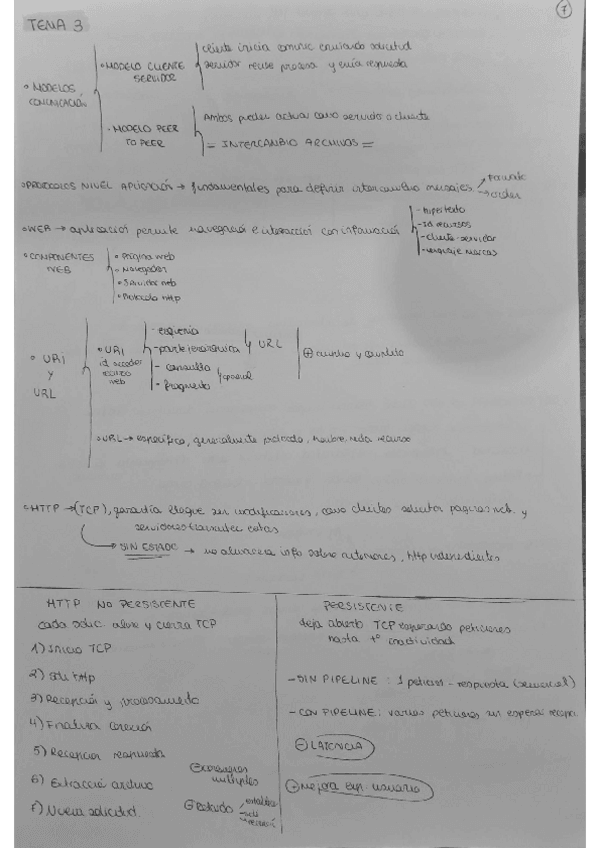 7
TEMA 3
• MODELOS COMUNICACIÓN
• MODELO CLIENTE SERVIDOR
cliente inicia comunic enviando solicitud
servidor recibe procesa y envía respuesta
• MODELO PEER TO PEER
Ambos pueden actuar como servidor o cliente
= INTERCAMBIO ARCHIVOS =
• PROTOCOLOS NIVEL APLICACIÓN → fundamentales para definir intercambio mensajes
→ formato
→ orden
• WEB → aplicación permite navegación e interacción con información
- hipertexto
- id recursos
- cliente-servidor
- lenguaje marcas
• COMPONENTES WEB
• Página web
• Navegador
• Servidor web
• Protocolo http
• URI y URL
• URI id acceder recurso web
- esquema
- parte jerárquica
URL
- consulta
- fragmento
opcional
⊕ amplio y completo
• URL → específica, generalmente protocolo, nombre, ruta recurso
• HTTP → (TCP), garantía llegue sin modificaciones, como clientes solicitan páginas web y
servidores transmiten estas
→ SIN ESTADO → no almacena info sobre anteriores, http independientes
HTTP NO PERSISTENTE
cada solic. abre y cierra TCP
1) Inicio TCP
2) Sol http
3) Recepción y procesamiento
4) Finaliza conexión
5) Recepción respuesta
6) Extracció archivo
7) Nueva solicitud.
⊖ conexiones múltiples
⊖ retardo
- establec
- recepció
PERSISTENTE
deja abierto TCP esperando peticiones
hasta tº inactividad
- SIN PIPELINE : 1 petición - respuesta (secuencial)
- CON PIPELINE: varias peticiones sin esperar
⊖ LATENCIA
⊕ Mejora exp. usuario